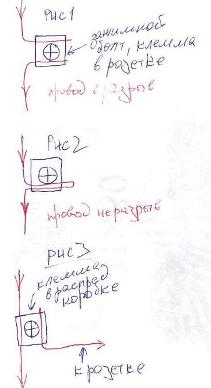 Рис1
зажимной
болт, клемма
в розетке
провод в разрыв
Рис2
провод неразрыв
рис3
клемма
в распред
коробке
к розетке